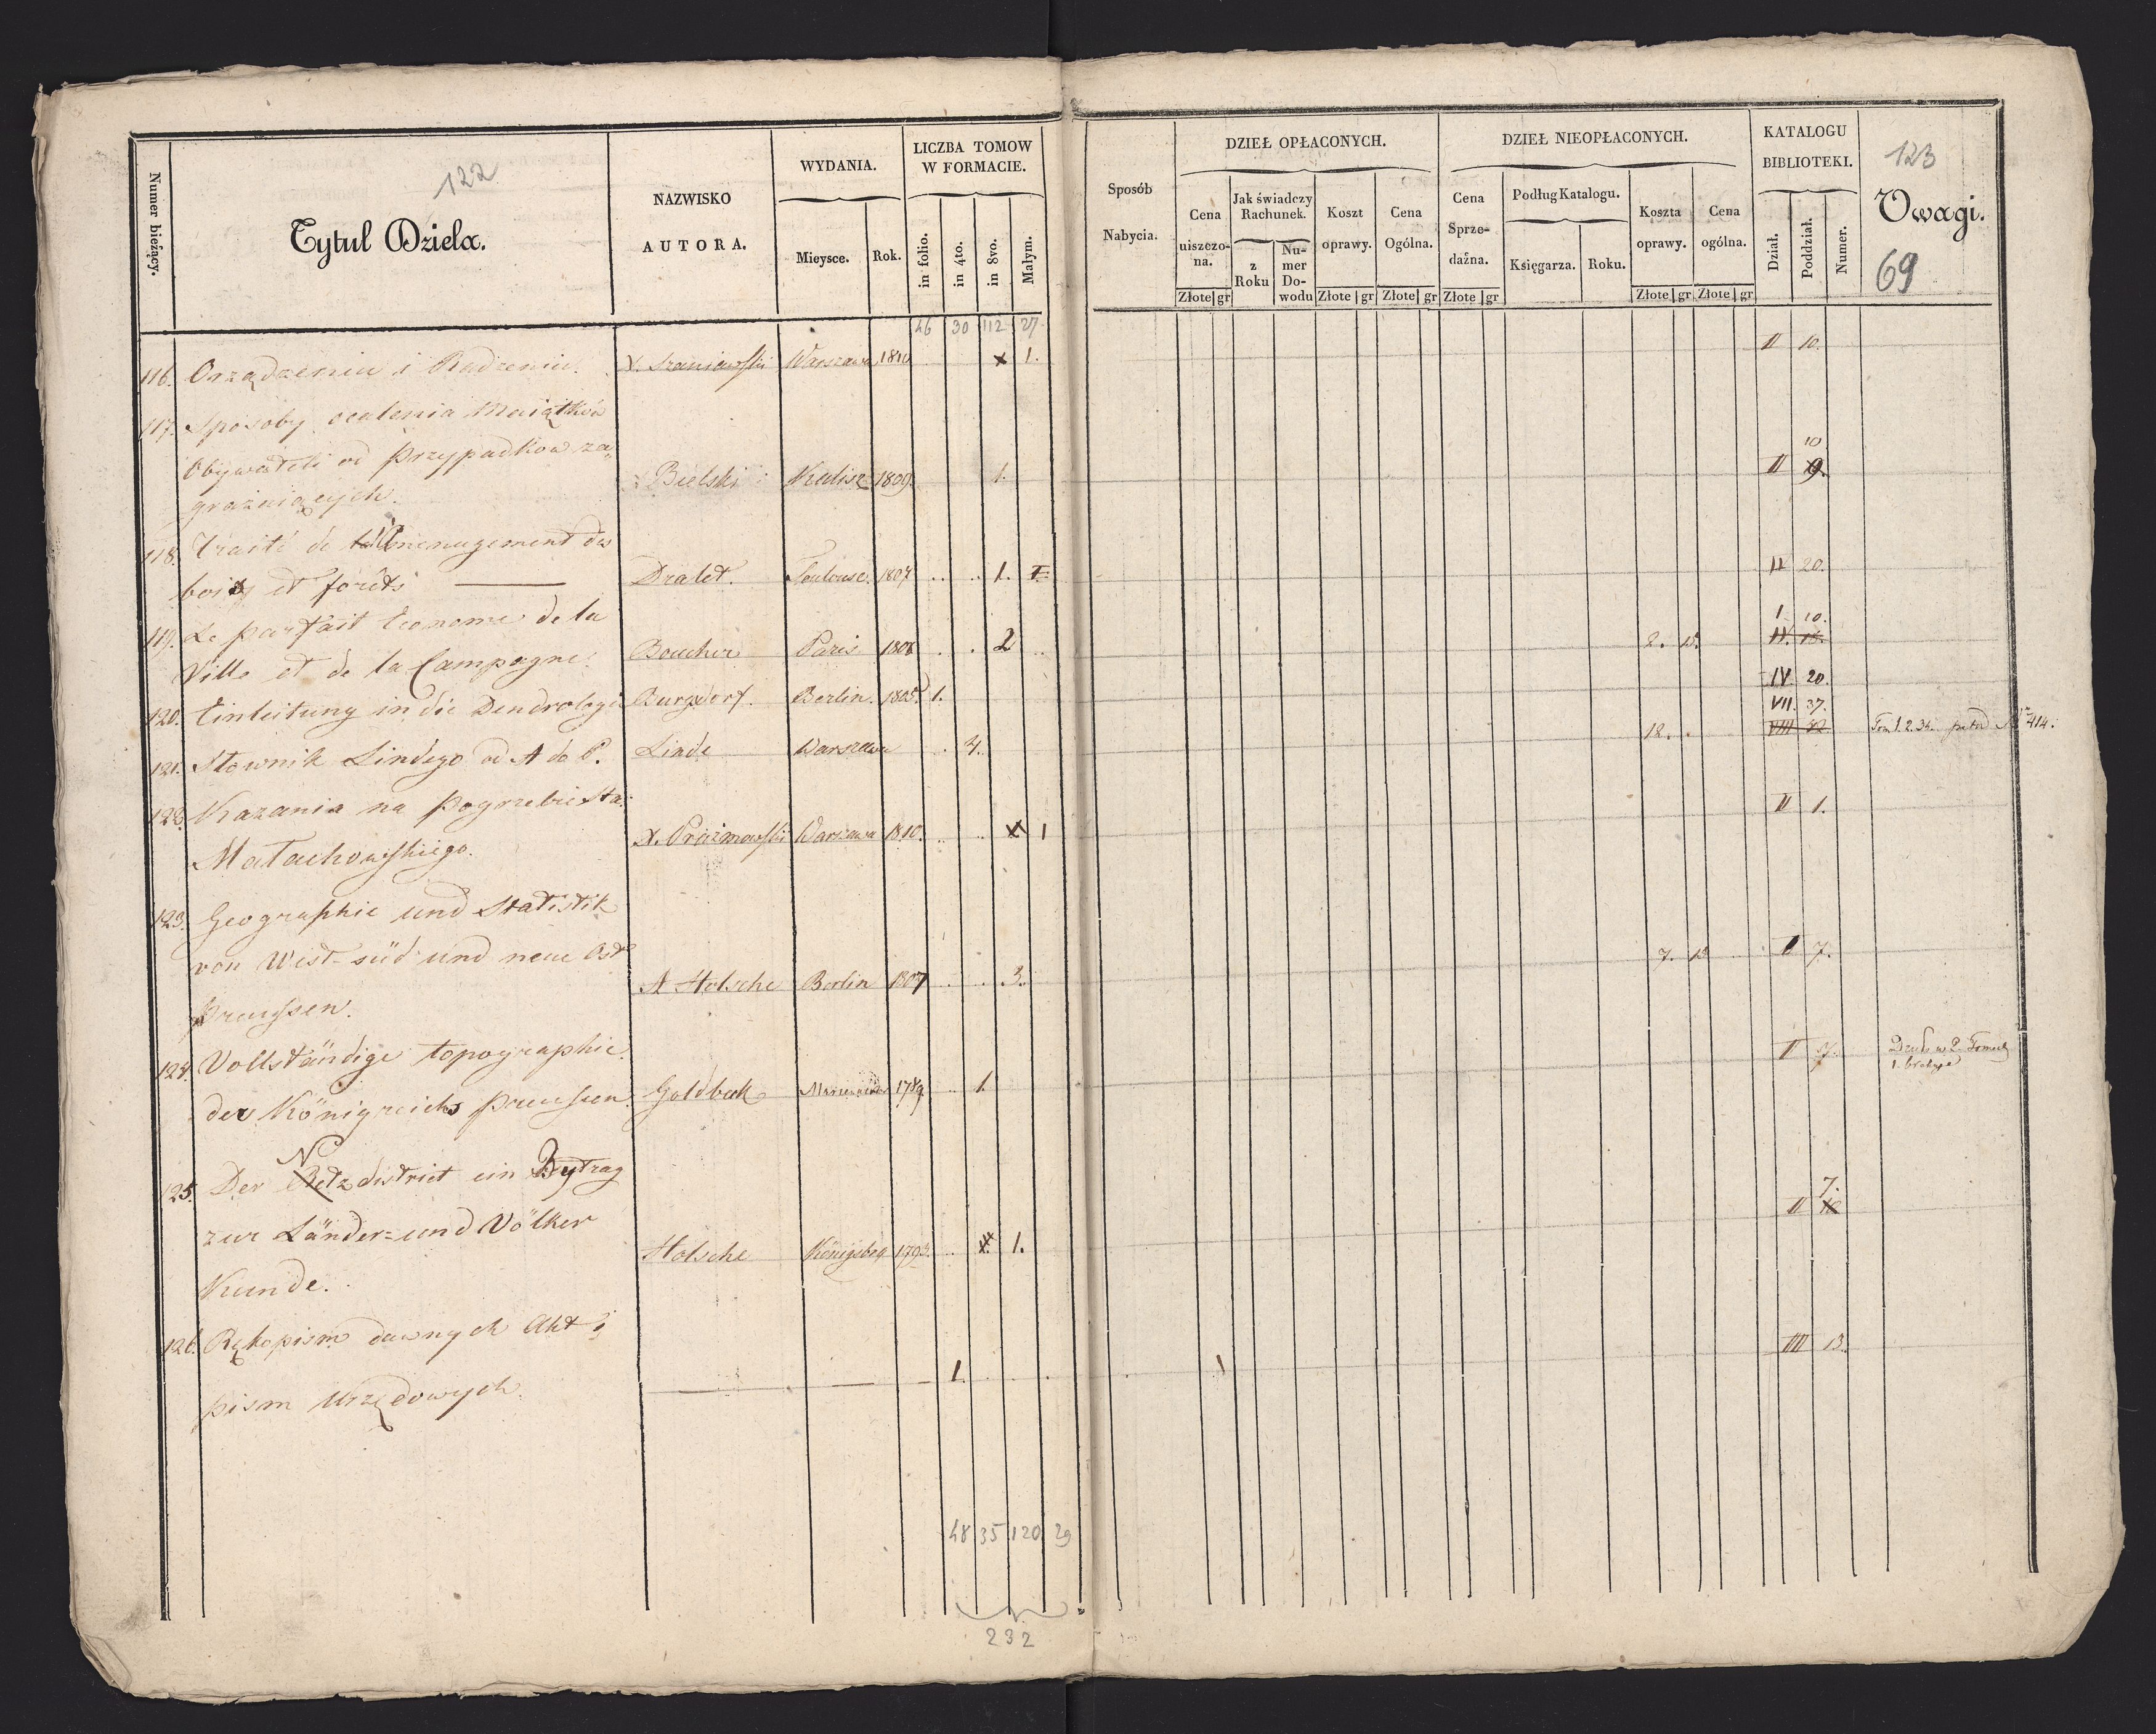 122
Numer bieżący.
Tytuł Dzieła.
NAZWISKO
AUTORA.
WYDANIA.
Mieysce.
Rok.
LICZBA TOMOW
W FORMACIE.
in folio.
in 4to.
in 8vo.
Małym.
46 30 112 27
116. Orządzenia i Radzeniu. X. Szaniawski Warszawa 1810 x 1.
117. Sposoby ocalenia Maiątków
Obywateli od Przypadkow za„
grażaiących. Bielski Kalisz 1809. 1.
118. Traité de l'Amenagement des
bois et forêts Dralet. Toulouse. 1807 .. .. 1. I
119. Le parfait Econome de la
Ville et de la Campagne. Boucher Paris 1808 . . 2 ..
120. Einleitung in die Dendrologie Burgsdorf. Berlin. 1805. 1.
121. Słownik Lindego od A do P. Linde Warszawa . 4.
122. Kazania na pogrzebie Sta:
Małachowskiego. X. Prażmowski Warszawa 1810. .. .. x 1
123. Geographie und Statistik
von West-süd und neue Ost
Preussen. A Holsche Berlin 1807 . . 3.
124. Vollständige topographie
der Königreichs Preussen. Goldbeck 1789 .. 1.
125. Der Netzdistrict ein Bytrag
zur Länder-und Völker
Kunde. Holsche Königsberg 1793. .. x 1.
126. Rękopism dawnych Akt i
pism Urzędowych. 1.
48 35 120 29
232
Sposób
Nabycia.
DZIEŁ OPŁACONYCH.
Cena
uiszczo-
na.
Złote gr
Jak świadczy
Rachunek.
z
Roku
Nu-
mer
Do-
wodu
Koszt
oprawy.
Złote gr
Cena
Ogólna.
Złote gr
DZIEŁ NIEOPŁACONYCH.
Cena
Sprze-
dażna.
Złote gr
Podług Katalogu.
Księgarza.
Roku.
Koszta
oprawy.
Złote gr
Cena
ogólna.
Złote gr
KATALOGU
BIBLIOTEKI.
Dział.
Poddział.
Numer.
123
Uwagi.
69
II 10.
10
II 9.
IV 20.
I 10.
2. 15. IV. 15.
IV. 20.
VII. 37.
18. . VIII 32 Tom 1. 2. 34. 414.
II 1.
7. 15 II 7.
II 7. Dzieło w 2. Tomach
1.
7.
II 10
1 IIII 13.